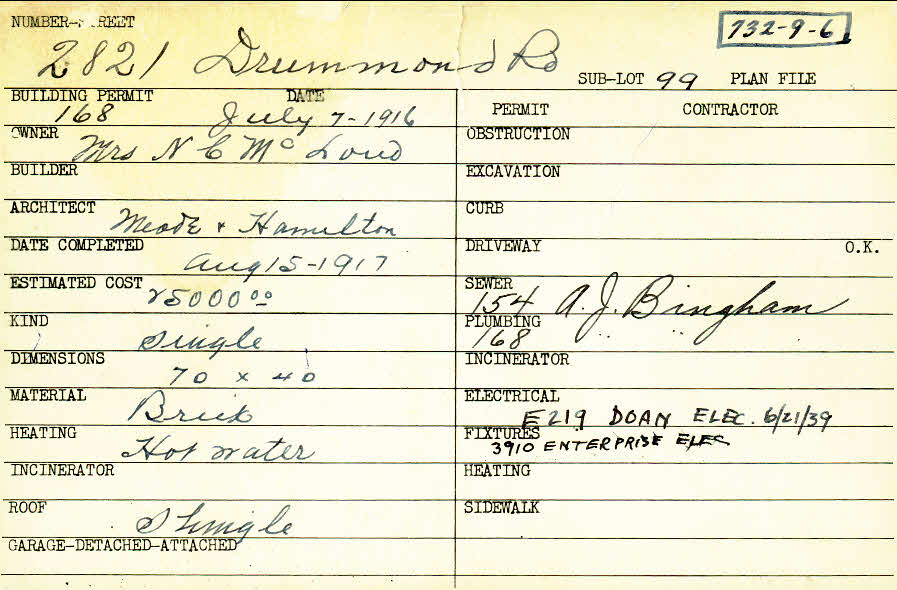 NUMBER-STREET
732-9-6
2821 Drummond Rd
SUB-LOT 99 PLAN FILE
BUILDING PERMIT DATE
168 July 7-1916
PERMIT CONTRACTOR
OWNER
Mrs N C Mc Loud
OBSTRUCTION
BUILDER
EXCAVATION
ARCHITECT
Meade & Hamilton
CURB
DATE COMPLETED
Aug 15-1917
DRIVEWAY O.K.
ESTIMATED COST
25000 00
SEWER
154 A. J. Bingham
KIND
Single
PLUMBING
168 " "
DIMENSIONS
70 x 40
INCINERATOR
MATERIAL
Brick
ELECTRICAL
E219 DOAN ELEC. 6/21/39
HEATING
Hot water
FIXTURES
3910 ENTERPRISE ELEC
INCINERATOR
HEATING
ROOF
Shingle
SIDEWALK
GARAGE-DETACHED-ATTACHED